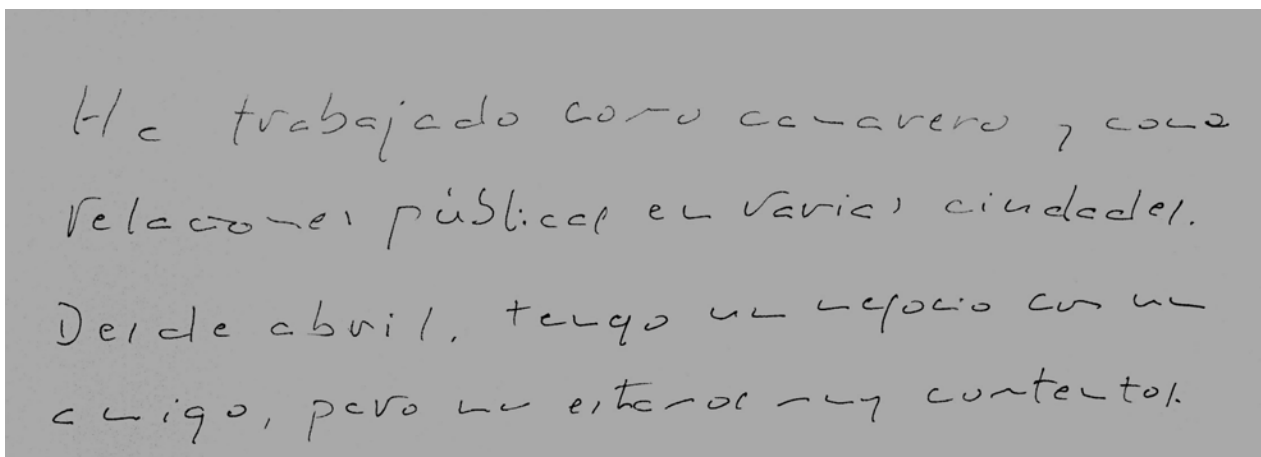 He trabajado como camarero y como
relaciones públicas en varias ciudades.
Desde abril, tengo un negocio con un
amigo, pero no estamos muy contentos.